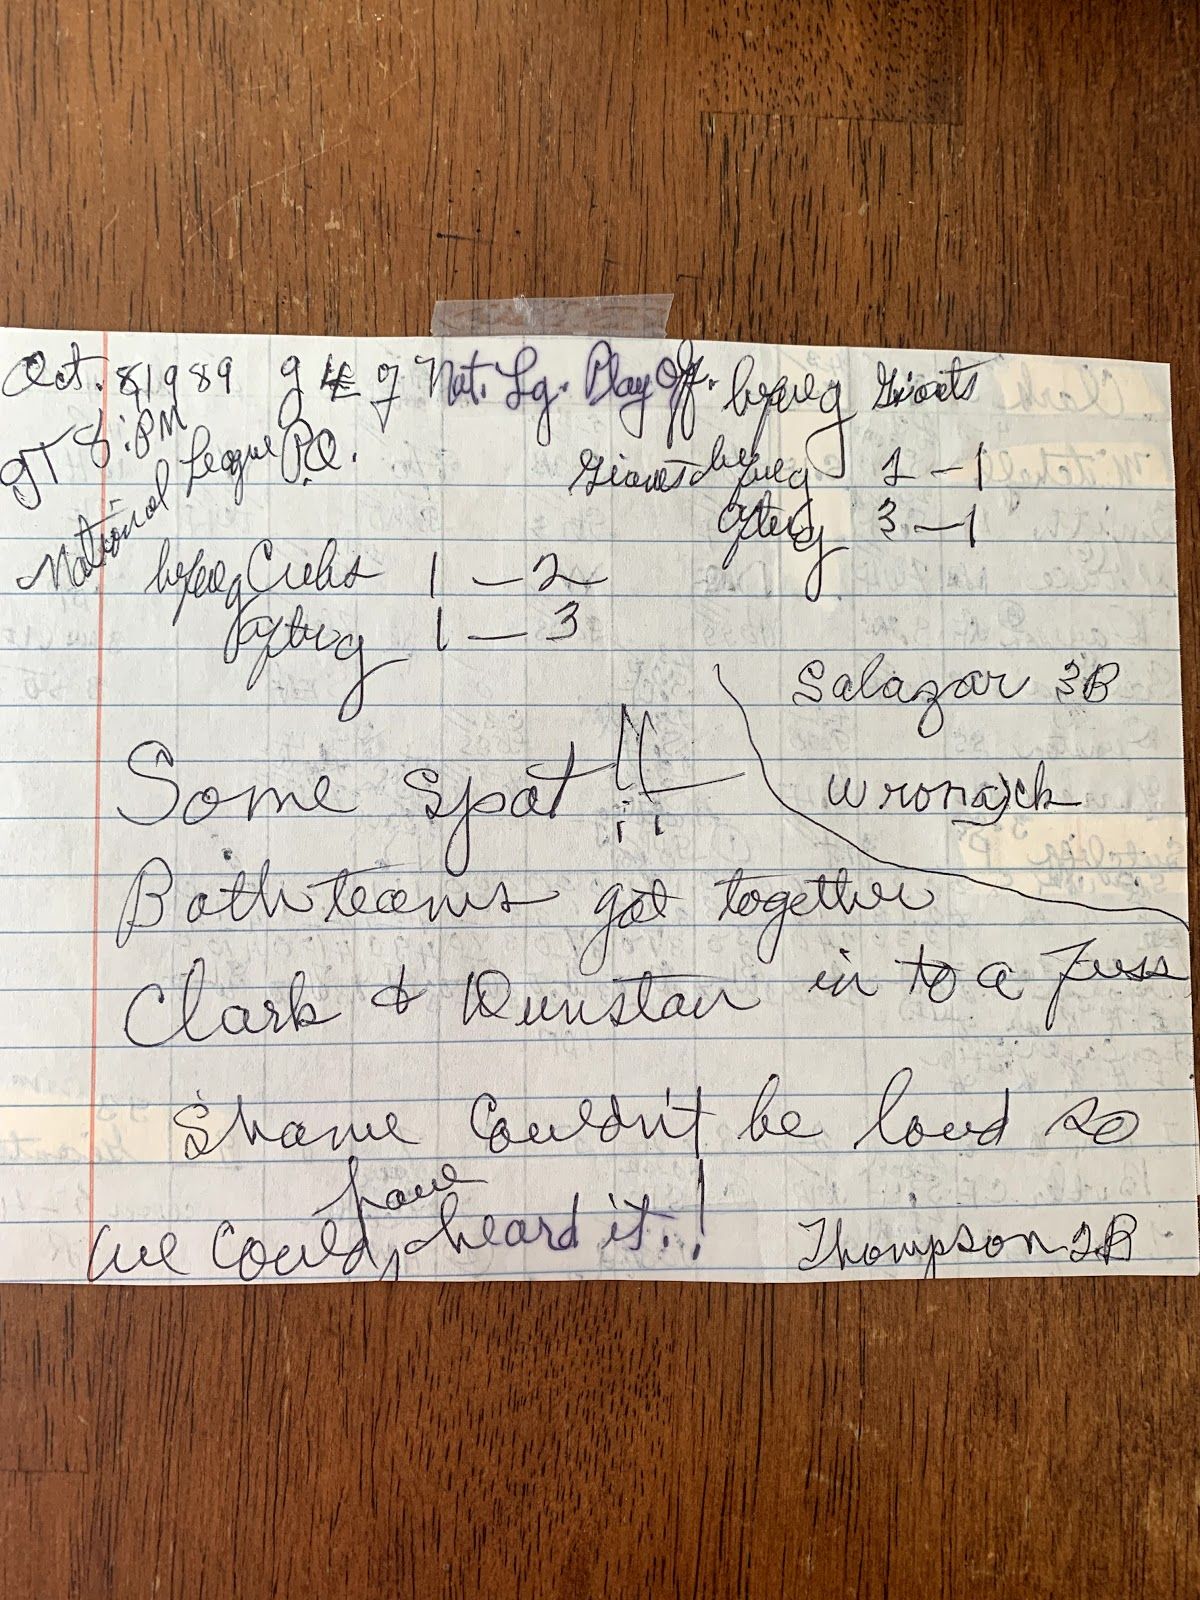 Oct. 8, 1989 g 4 of Nat. Lg. Play Off. before g Giants
GT 8:PM
National League P.O.
Giants before g 2 – 1
after g 3 – 1
before g Cubs 1 – 2
after g 1 – 3
Salazar 3B
Some spat !!
Wrona, ck
Both teams got together
Clark & Dunstan in to a fuss
Shame couldn't be loud so
have
we could, heard it.!
Thompson 2B